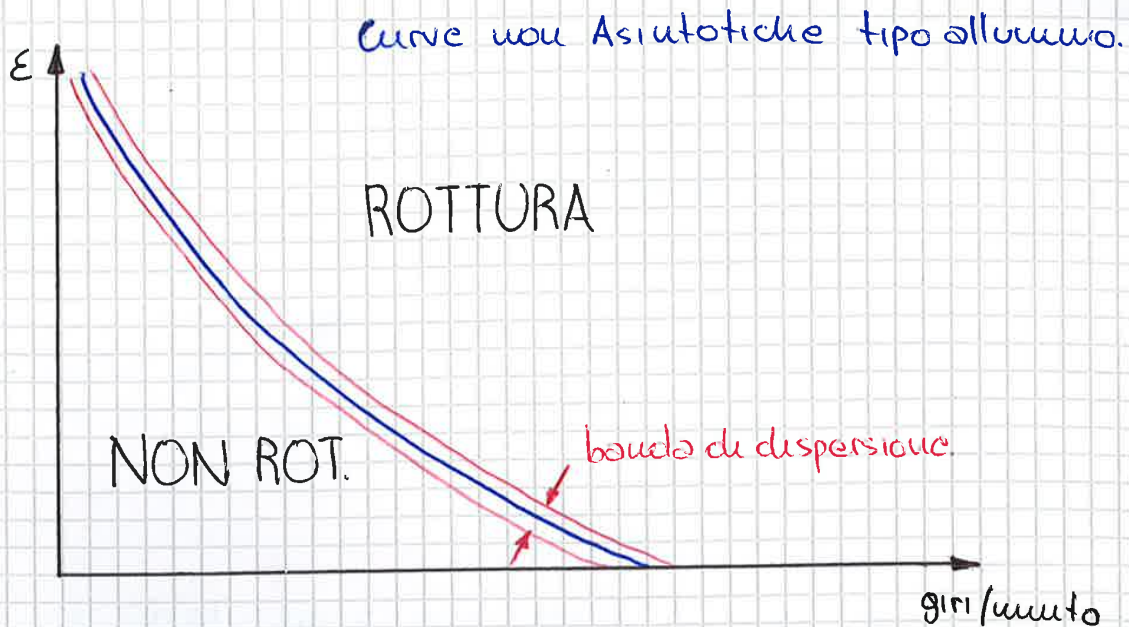 Curve non Asintotiche tipo alluminio.
ε
ROTTURA
NON ROT.
banda di dispersione.
giri/minuto